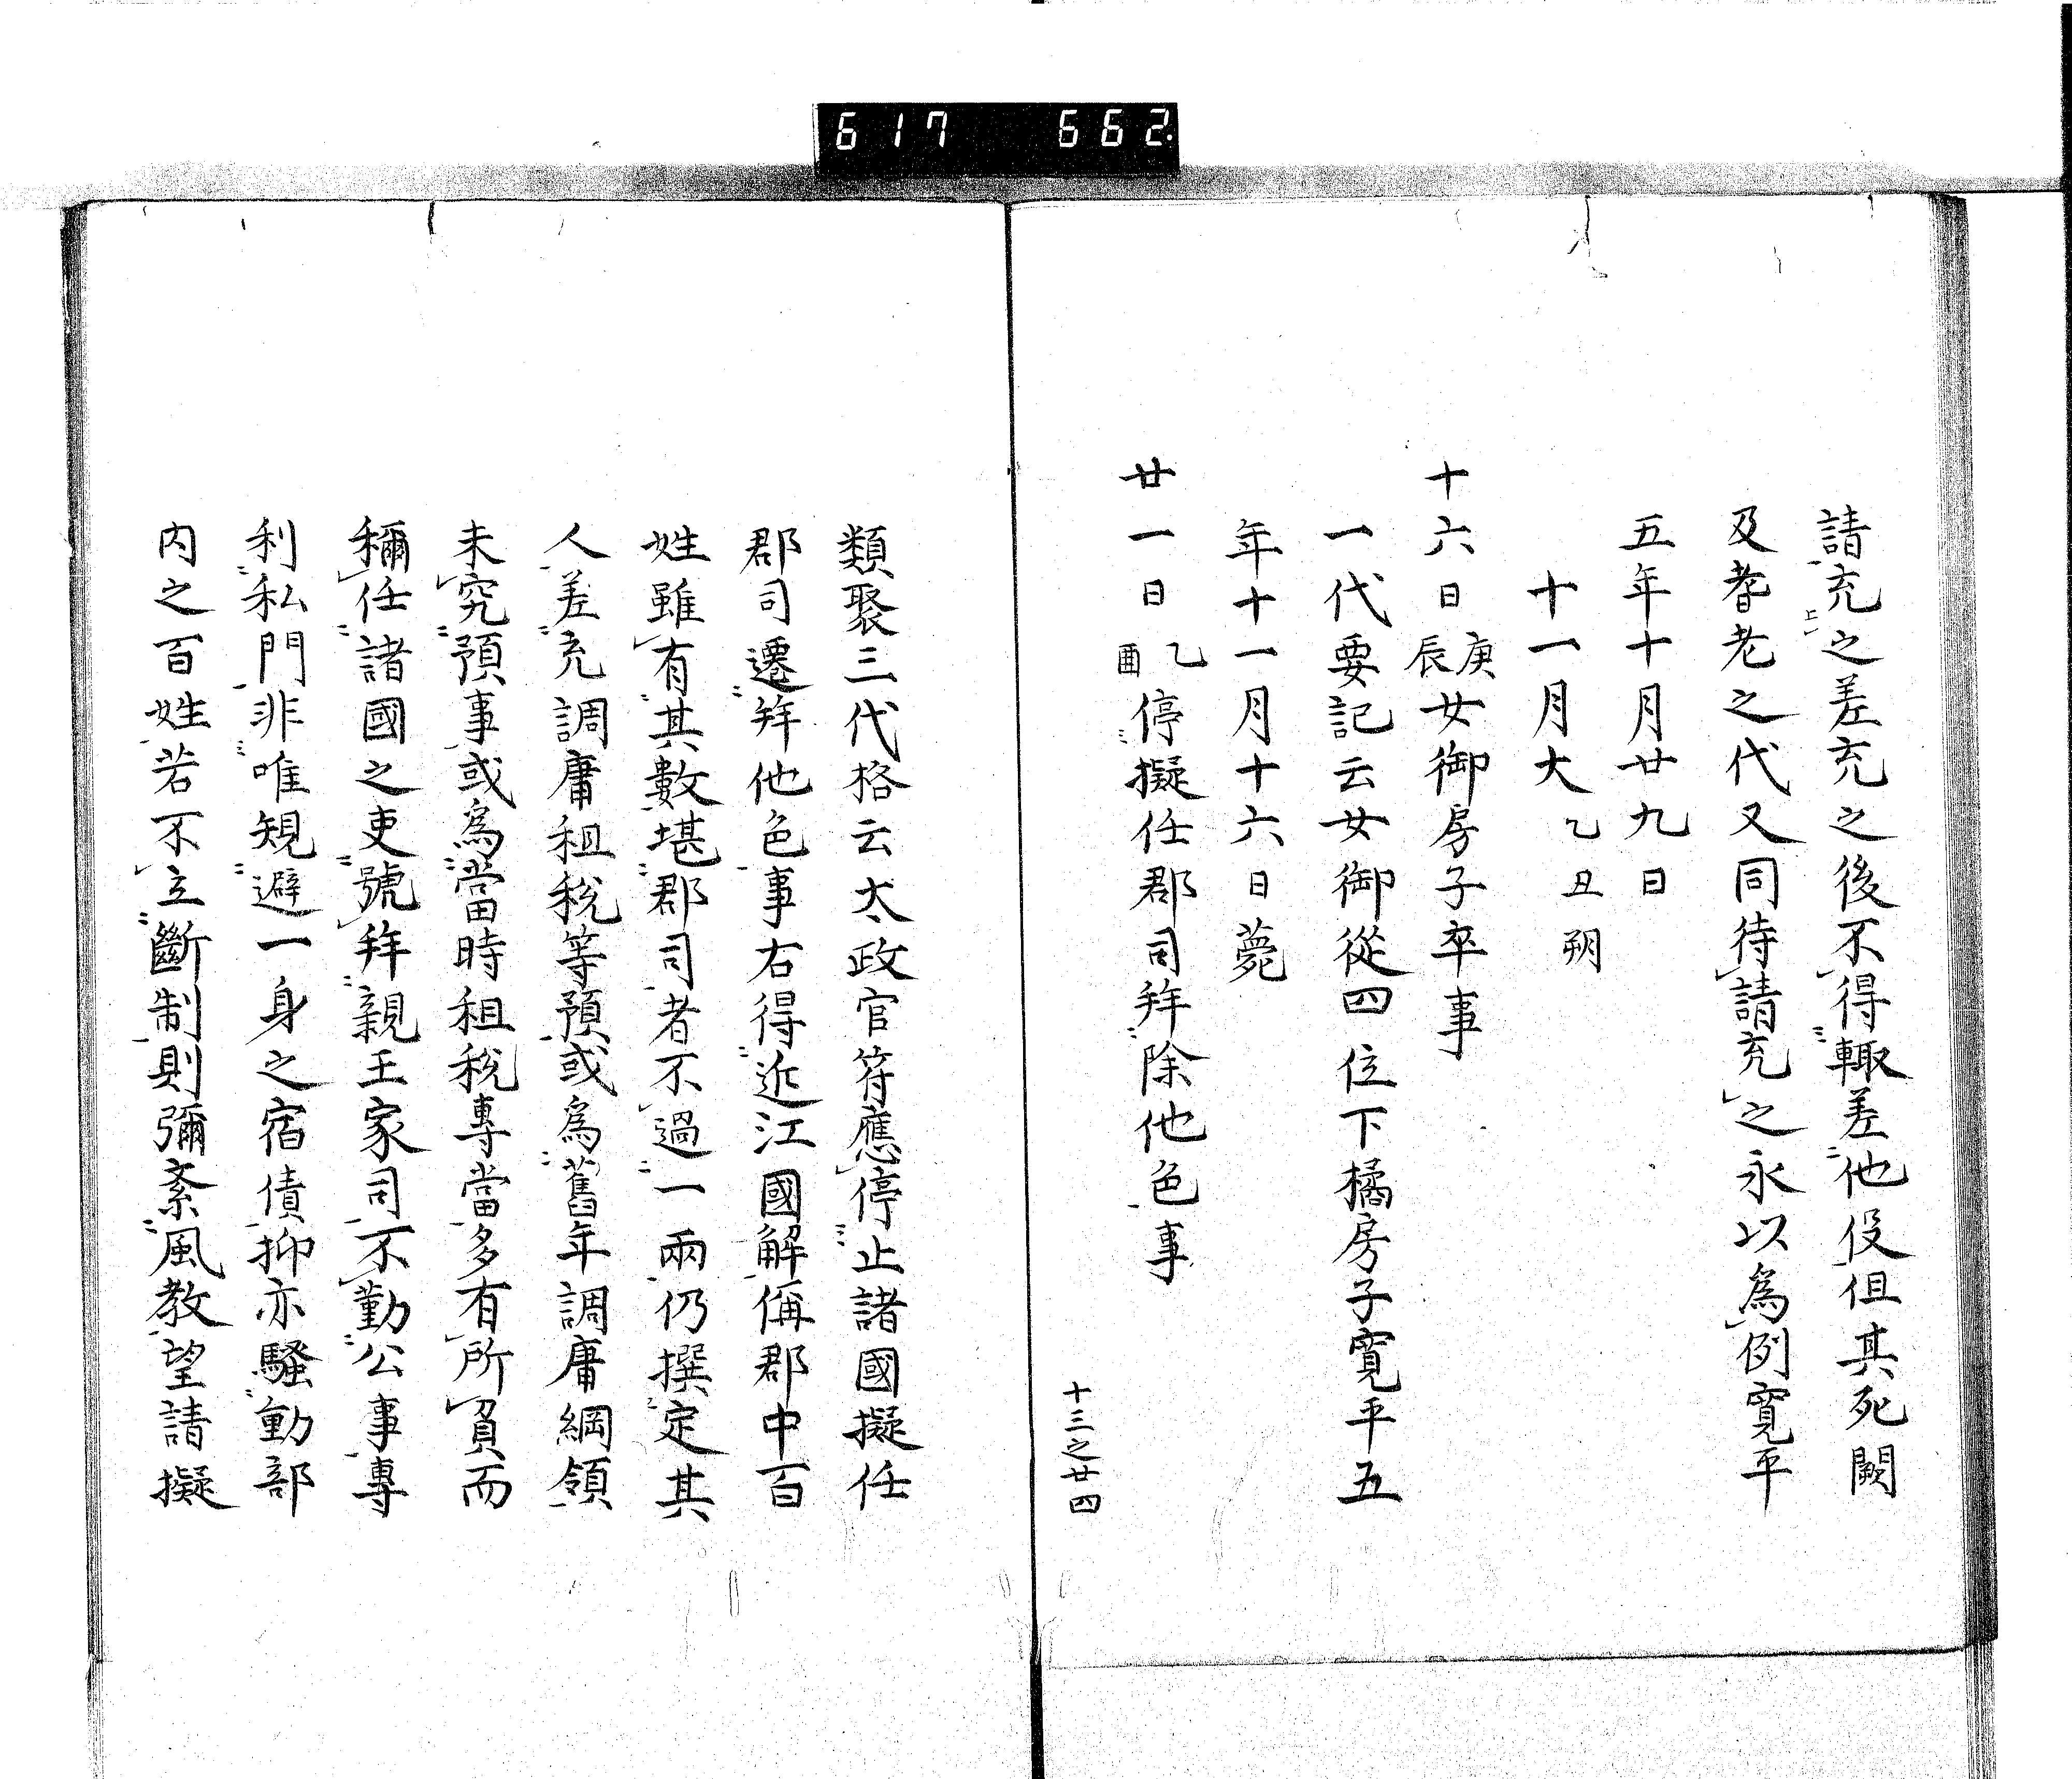 617 662
請充之差充之後不得輙差他役但其死闕
及耆老之代又同待請充之永以為例寛平
五年十月廿九日
十一月大乙丑朔
十六日庚辰女御房子卒事
一代要記云女御從四位下橘房子寛平五
年十一月十六日薨
廿一日乙酉停擬任郡司拜除他色事
十三之廿四
類聚三代格云太政官符應停止諸國擬任
郡司遷拜他色事右得近江國解偁郡中百
姓雖有其數堪郡司者不過一兩仍撰定其
人差充調庸租税等預或為舊年調庸綱領
未究預事或為當時租税專當多有所負而
稱任諸國之吏號拜親王家司不勤公事專
利私門非唯規避一身之宿債抑亦騷動部
内之百姓若不立斷制則彌紊風教望請擬